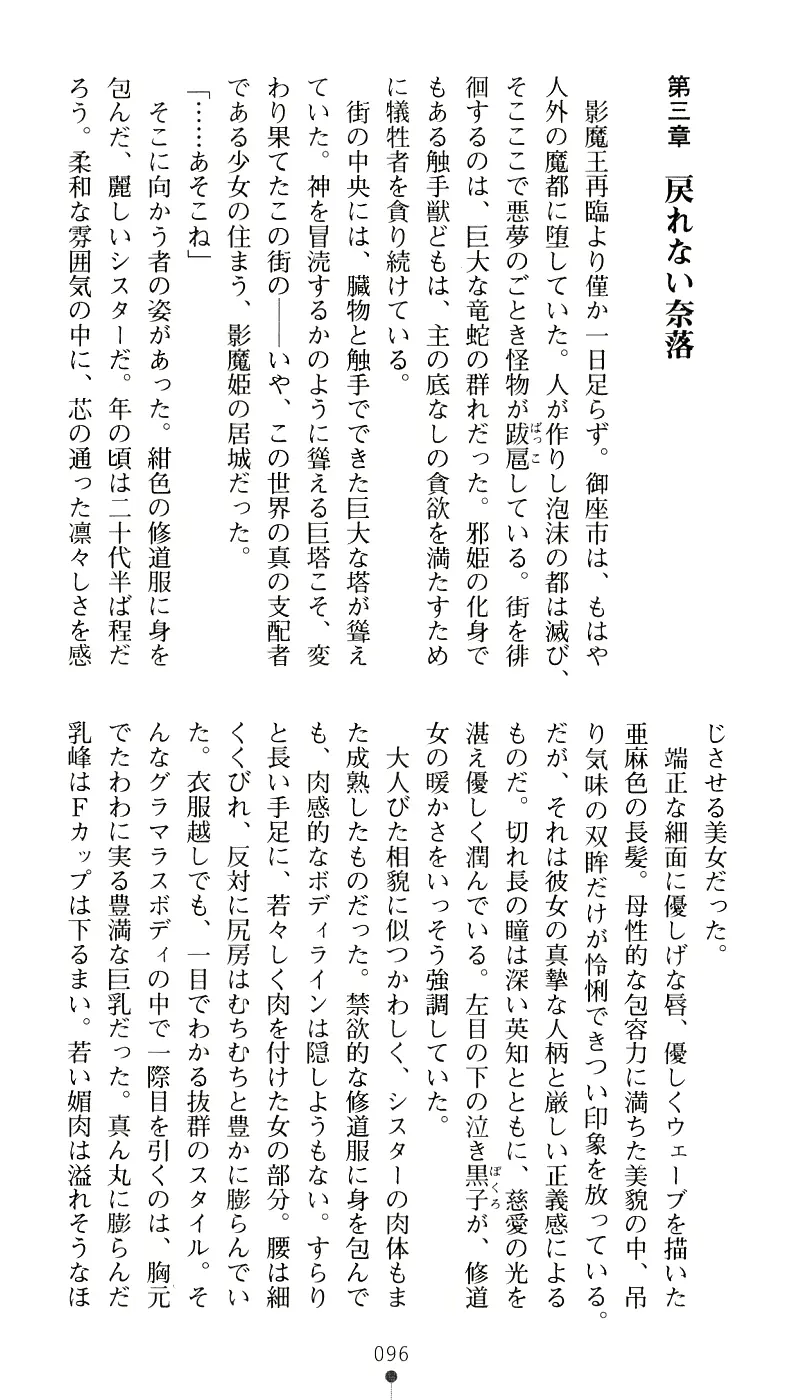 第三章　戻れない奈落
　影魔王再臨より僅か一日足らず。御座市は、もはや
人外の魔都に堕していた。人が作りし泡沫の都は滅び、
そこここで悪夢のごとき怪物が跋扈している。街を徘
徊するのは、巨大な竜蛇の群れだった。邪姫の化身で
もある触手獣どもは、主の底なしの貪欲を満たすため
に犠牲者を貪り続けている。
　街の中央には、臓物と触手でできた巨大な塔が聳え
ていた。神を冒涜するかのように聳える巨塔こそ、変
わり果てたこの街の――いや、この世界の真の支配者
である少女の住まう、影魔姫の居城だった。
「……あそこね」
　そこに向かう者の姿があった。紺色の修道服に身を
包んだ、麗しいシスターだ。年の頃は二十代半ば程だ
ろう。柔和な雰囲気の中に、芯の通った凛々しさを感
じさせる美女だった。
　端正な細面に優しげな唇、優しくウェーブを描いた
亜麻色の長髪。母性的な包容力に満ちた美貌の中、吊
り気味の双眸だけが怜悧できつい印象を放っている。
だが、それは彼女の真摯な人柄と厳しい正義感による
ものだ。切れ長の瞳は深い英知とともに、慈愛の光を
湛え優しく潤んでいる。左目の下の泣き黒子が、修道
女の暖かさをいっそう強調していた。
　大人びた相貌に似つかわしく、シスターの肉体もま
た成熟したものだった。禁欲的な修道服に身を包んで
も、肉感的なボディラインは隠しようもない。すらり
と長い手足に、若々しく肉を付けた女の部分。腰は細
くくびれ、反対に尻房はむちむちと豊かに膨らんでい
た。衣服越しでも、一目でわかる抜群のスタイル。そ
んなグラマラスボディの中で一際目を引くのは、胸元
でたわわに実る豊満な巨乳だった。真ん丸に膨らんだ
乳峰はFカップは下るまい。若い媚肉は溢れそうなほ
ばっこ
ぼくろ
096